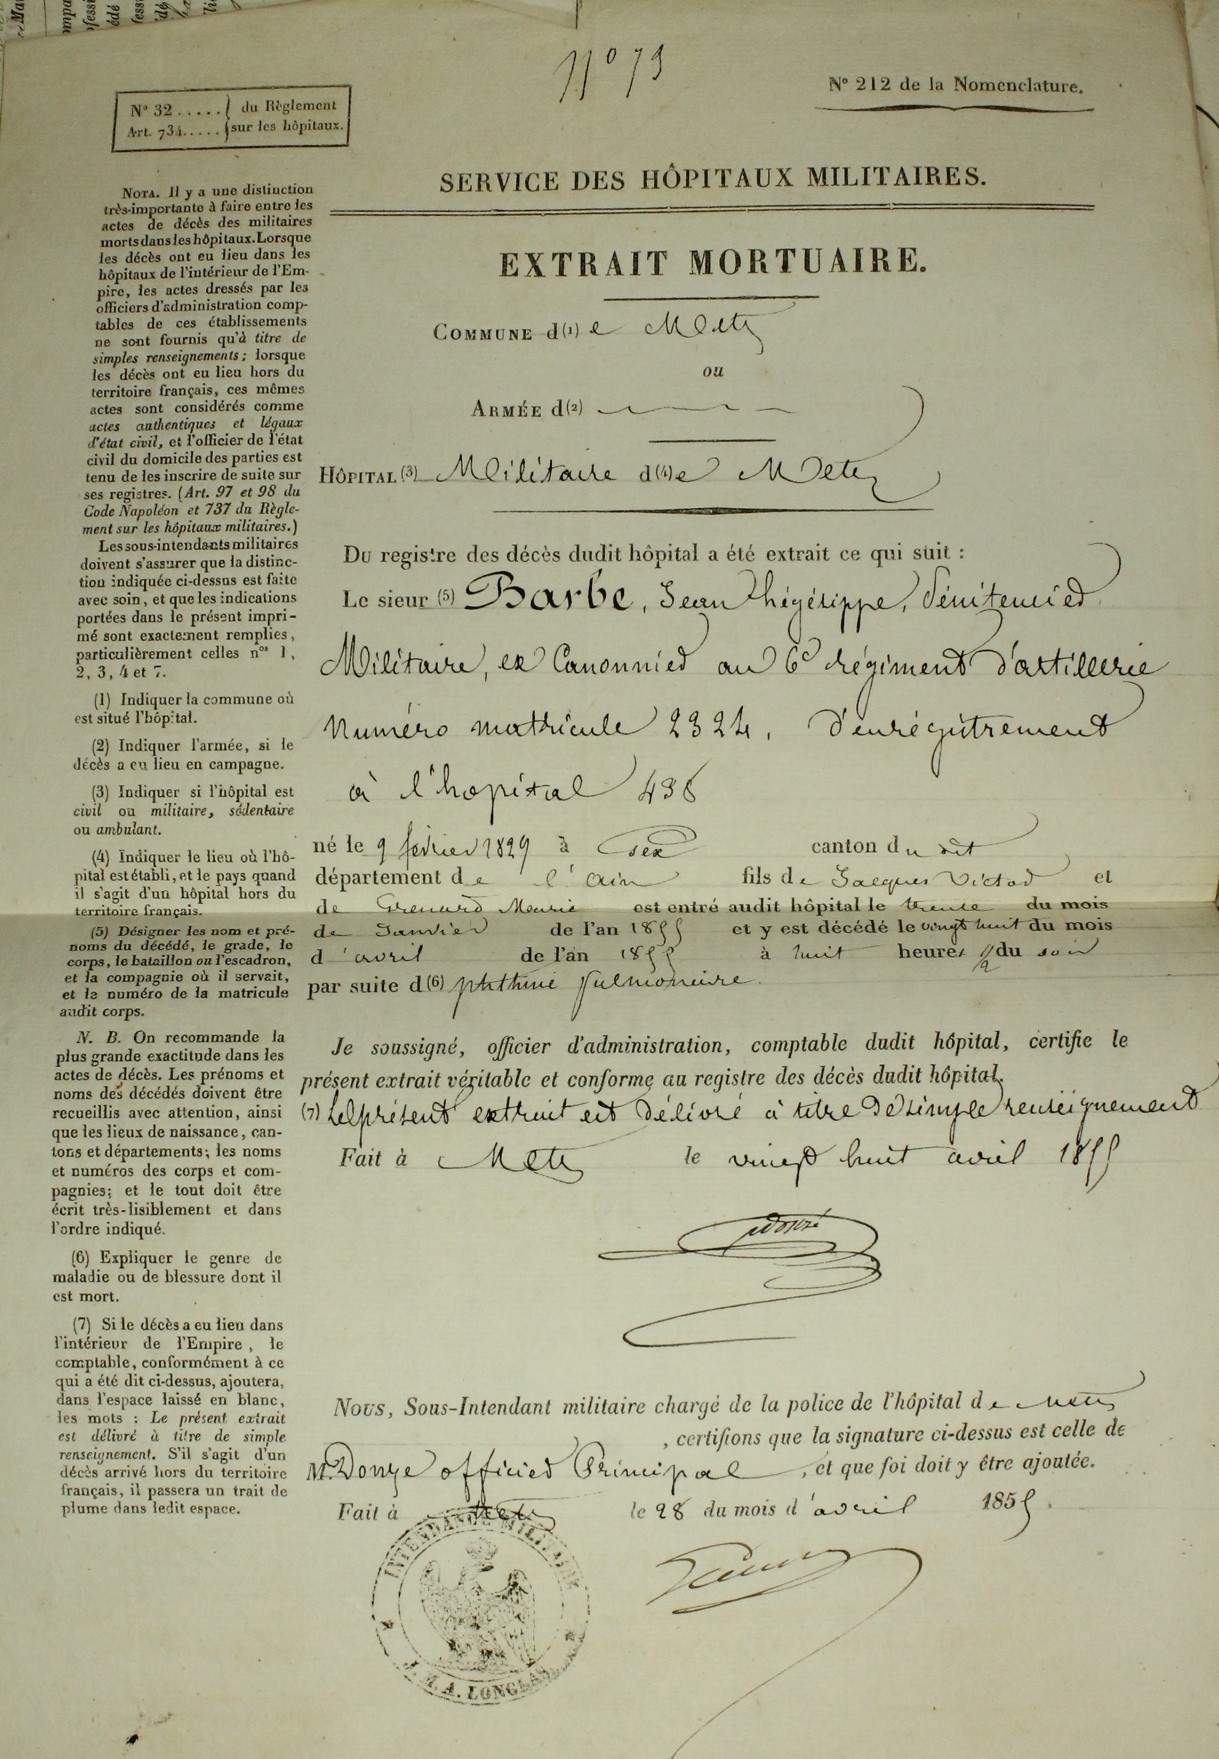 N° 73
N° 212 de la Nomenclature.
N° 32 ..... } du Règlement
Art. 734..... } sur les hôpitaux.
SERVICE DES HÔPITAUX MILITAIRES.
EXTRAIT MORTUAIRE.
COMMUNE d(1) e Metz
ou
ARMÉE d(2)
HÔPITAL (3) Militaire d(4) e Metz
Du registre des décès dudit hôpital a été extrait ce qui suit :
Le sieur (5) Barbe, Jean Hégésippe, Pénitencier
Militaire, ex Canonnier au 6e régiment d'artillerie
Numéro matricule 2324, d'enrégistrement
à l'hopital 436
né le 9 février 1829 à Gex canton du dit
département de l'Ain fils de Jacques Victor et
de Grenard Marie est entré audit hôpital le trente du mois
de Janvier de l'an 1855 et y est décédé le vingt huit du mois
d'avril de l'an 1855 à huit heures 1/2 du soir
par suite d(6) phthisie pulmonaire.
Je soussigné, officier d'administration, comptable dudit hôpital, certifie le
présent extrait véritable et conforme au registre des décès dudit hôpital.
(7) Le présent extrait est délivré à titre de simple renseignement
Fait à Metz le vingt huit avril 1855
Nous, Sous-Intendant militaire chargé de la police de l'hôpital de Metz
, certifions que la signature ci-dessus est celle de
M. Donze officier Principal, et que foi doit y être ajoutée.
Fait à Metz le 28 du mois d'avril 1855.
INTENDANCE MILITAIRE
NOTA. Il y a une distinction
très-importante à faire entre les
actes de décès des militaires
morts dans les hôpitaux. Lorsque
les décès ont eu lieu dans les
hôpitaux de l'intérieur de l'Em-
pire, les actes dressés par les
officiers d'administration comp-
tables de ces établissements
ne sont fournis qu'à titre de
simples renseignements; lorsque
les décès ont eu lieu hors du
territoire français, ces mêmes
actes sont considérés comme
actes authentiques et légaux
d'état civil, et l'officier de l'état
civil du domicile des parties est
tenu de les inscrire de suite sur
ses registres. (Art. 97 et 98 du
Code Napoléon et 737 du Règle-
ment sur les hôpitaux militaires.)
Les sous-intendants militaires
doivent s'assurer que la distinc-
tion indiquée ci-dessus est faite
avec soin, et que les indications
portées dans le présent impri-
mé sont exactement remplies,
particulièrement celles nos 1,
2, 3, 4 et 7.
(1) Indiquer la commune où
est situé l'hôpital.
(2) Indiquer l'armée, si le
décès a eu lieu en campagne.
(3) Indiquer si l'hôpital est
civil ou militaire, sédentaire
ou ambulant.
(4) Indiquer le lieu où l'hô-
pital est établi, et le pays quand
il s'agit d'un hôpital hors du
territoire français.
(5) Désigner les nom et pré-
noms du décédé, le grade, le
corps, le bataillon ou l'escadron,
et la compagnie où il servait,
et le numéro de la matricule
audit corps.
N. B. On recommande la
plus grande exactitude dans les
actes de décès. Les prénoms et
noms des décédés doivent être
recueillis avec attention, ainsi
que les lieux de naissance, can-
tons et départements; les noms
et numéros des corps et com-
pagnies; et le tout doit être
écrit très-lisiblement et dans
l'ordre indiqué.
(6) Expliquer le genre de
maladie ou de blessure dont il
est mort.
(7) Si le décès a eu lieu dans
l'intérieur de l'Empire, le
comptable, conformément à ce
qui a été dit ci-dessus, ajoutera,
dans l'espace laissé en blanc,
les mots : Le présent extrait
est délivré à titre de simple
renseignement. S'il s'agit d'un
décès arrivé hors du territoire
français, il passera un trait de
plume dans ledit espace.